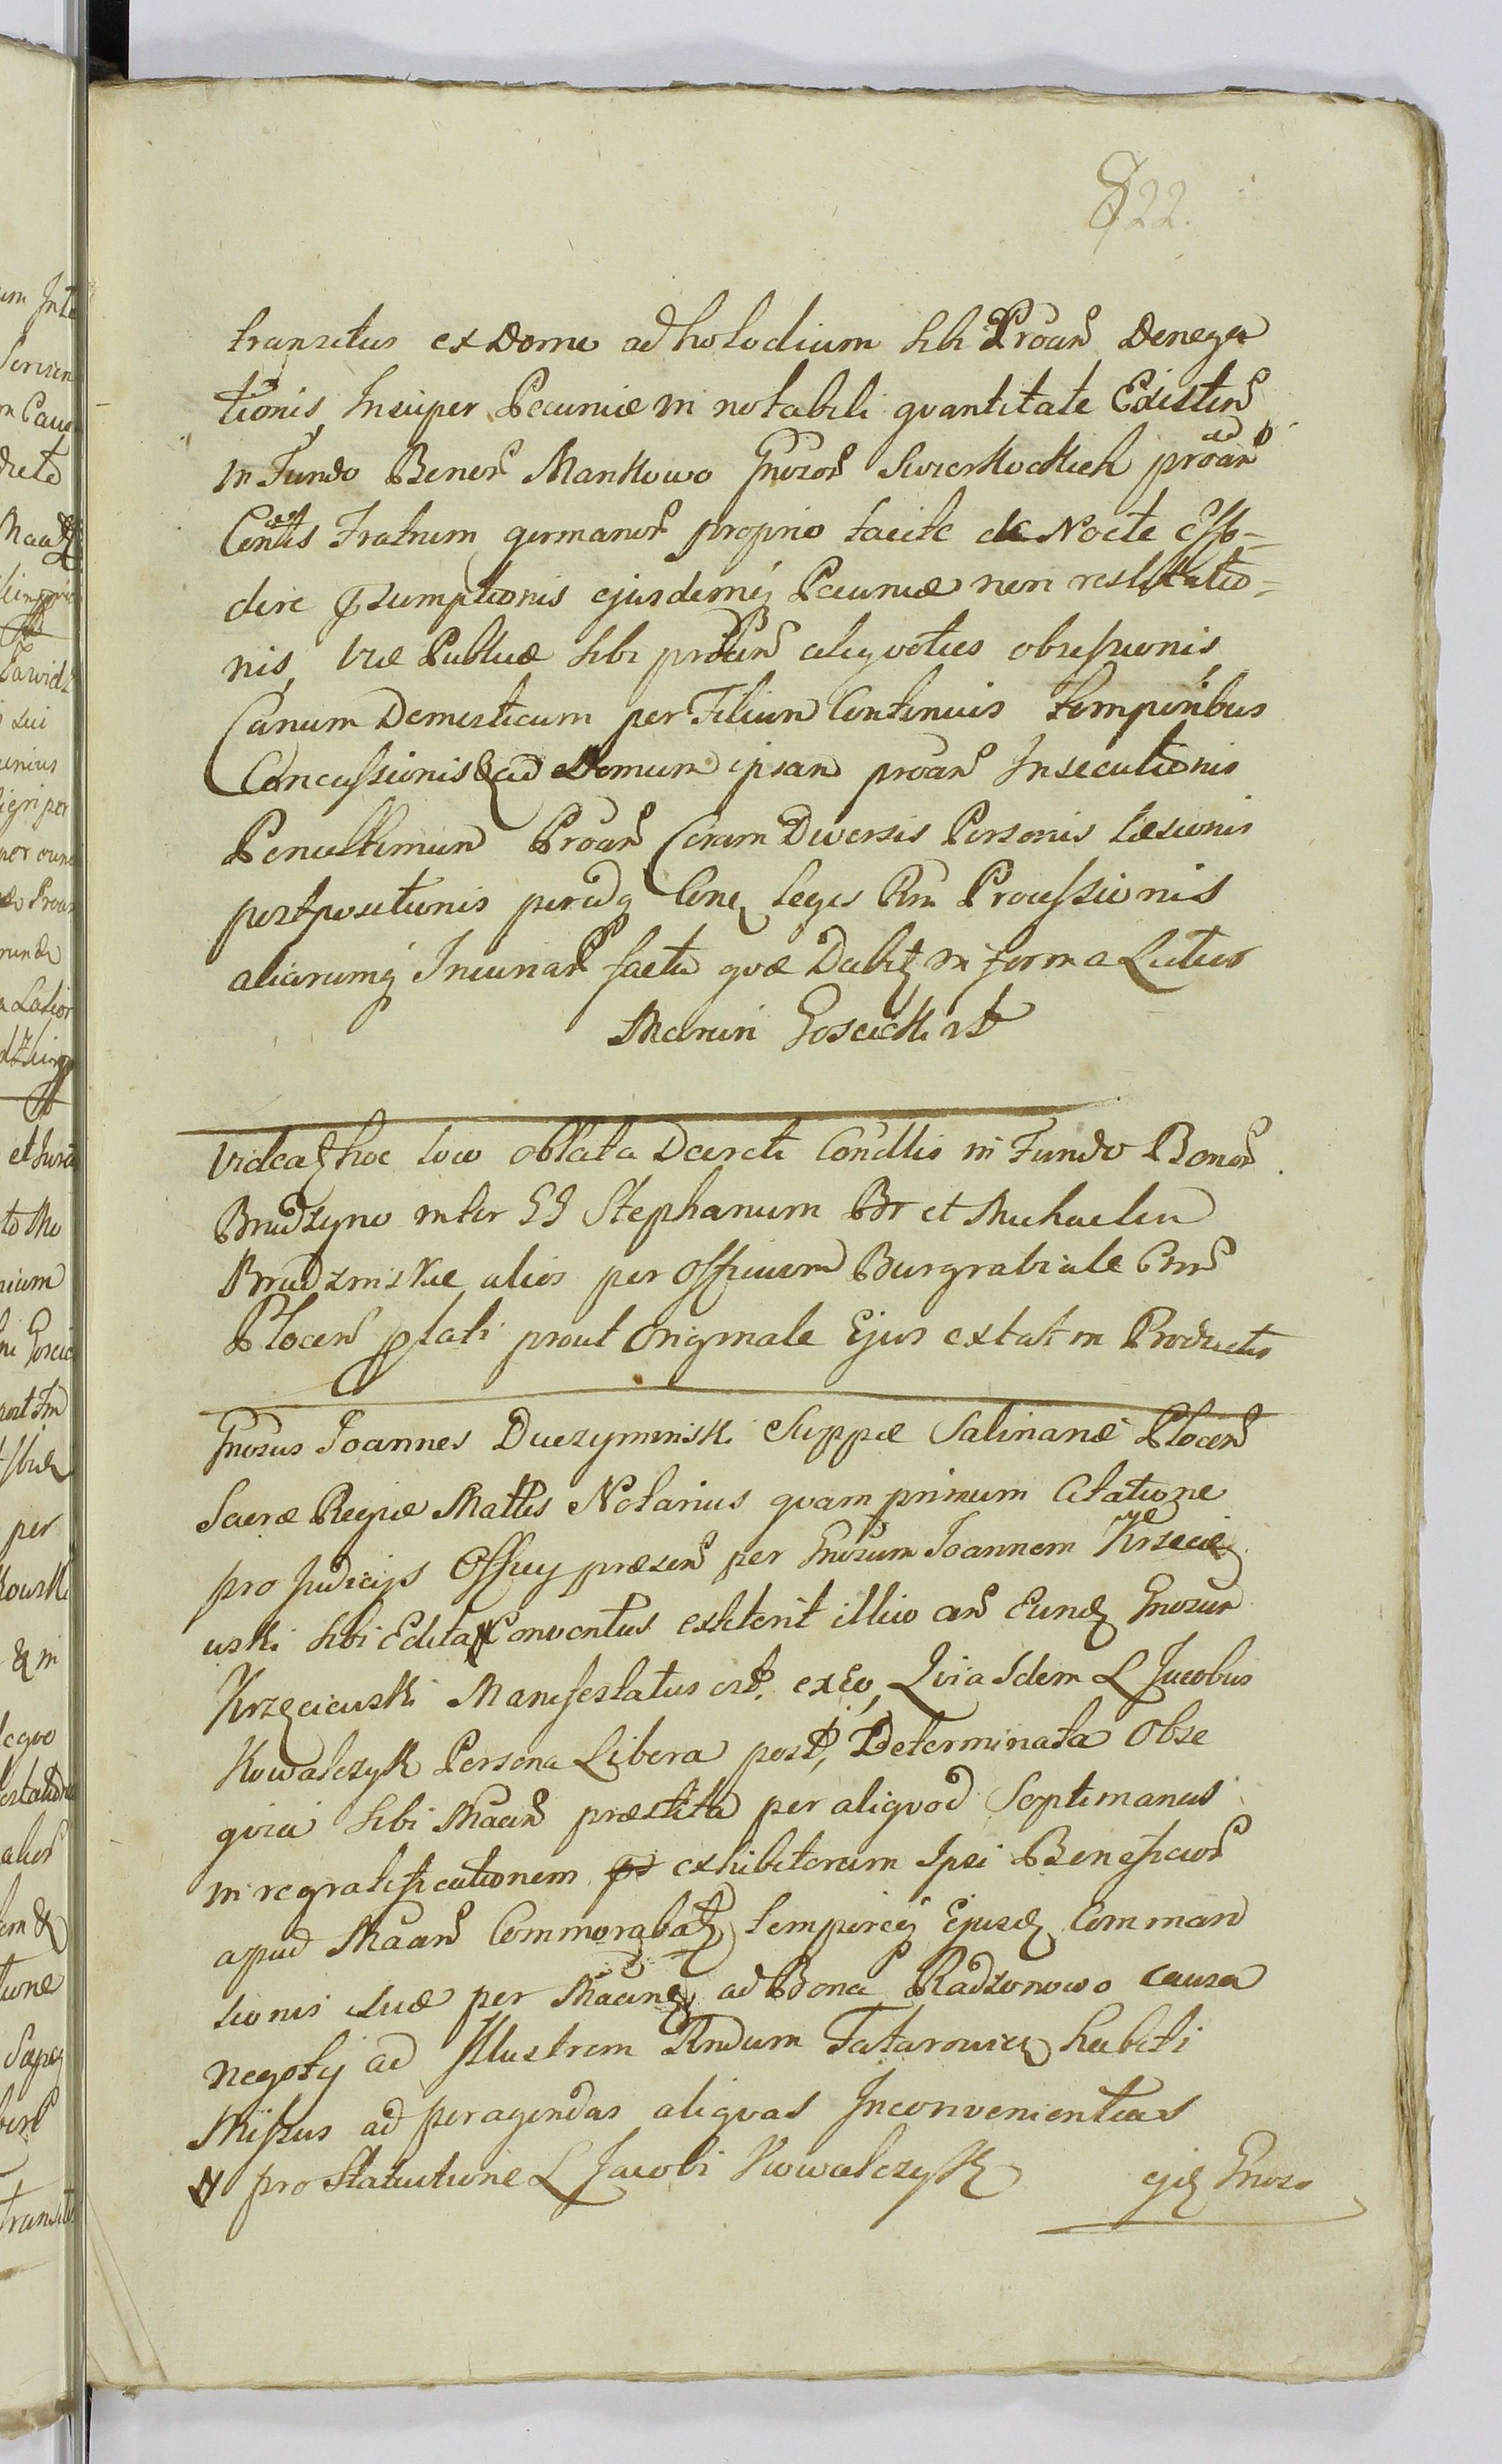 822.
transitus ex Domo ad holodium sibi Proãn Denega
tionis, Insuper Pecuniæ in notabili qvantitate Existẽn
in Fundo Bonoῦ Mankowo Gnosoῦ Swierkockich proãn ad
Centis Fratrum germanoῦ proprio tacite de Nocte Effo-
dere Præsumptionis ejusdemq Pecuniæ non restitutio-
nis, Viæ Publicæ sibi proãn aliqvoties obsessionis,
Canum Domesticum per Filium Continuis temporibus
Concussionis & ad Domum ipsam proãn Insecutionis
Penultimum Proãn Coram Diversis Personis læsionis
postpositionis periculq Conq Leges Rñi Processionis
aliarumq Iniuriaῦ facta qvæ Dabit in forma Latior
Marcin Goscicki
Videat hoc loco oblata Decreti Condllis in Fundo Bonoῦ
Brudzyno inter GG Stephanum Br et Michaelem
Brudzinskie alios per Officium Burgrabiale Cm̃s
Plocen̄ plati prout Originale Ejus extat in Productis
Gnosus Joannes Duczyminski Suppæ Salinariæ Plocen̄
Sacræ Regiæ Mattis Notarius qvam primum Citatione
pro Judicijs Officy præsen̄ per Gnosum Joannem Krzęcie
uski sibi Edita Conventus extiterit illico ãn Eundę Gnosum
Krzęciewski Manifestatus est, ex Eo, Qvia Idem L Jacobus
Kowalczyk Persona Libera post, Determinata Obse
qvia sibi Maãn præstita per aliqvod Septimanas
in regratificationem exhibitorum Ipsi Beneficioῦ
apud Maãn Commorabat, temporeq Ejusd Comman
sionis suæ per Maãn ad Bona Radzonowo causa
negotij ad Illustrem Rndum Tatarowicz habiti
Missus ad peragendas aliqvas Inconvenientias
pro Statuitione L Jacobi Kowalczyk ejd Gnoso